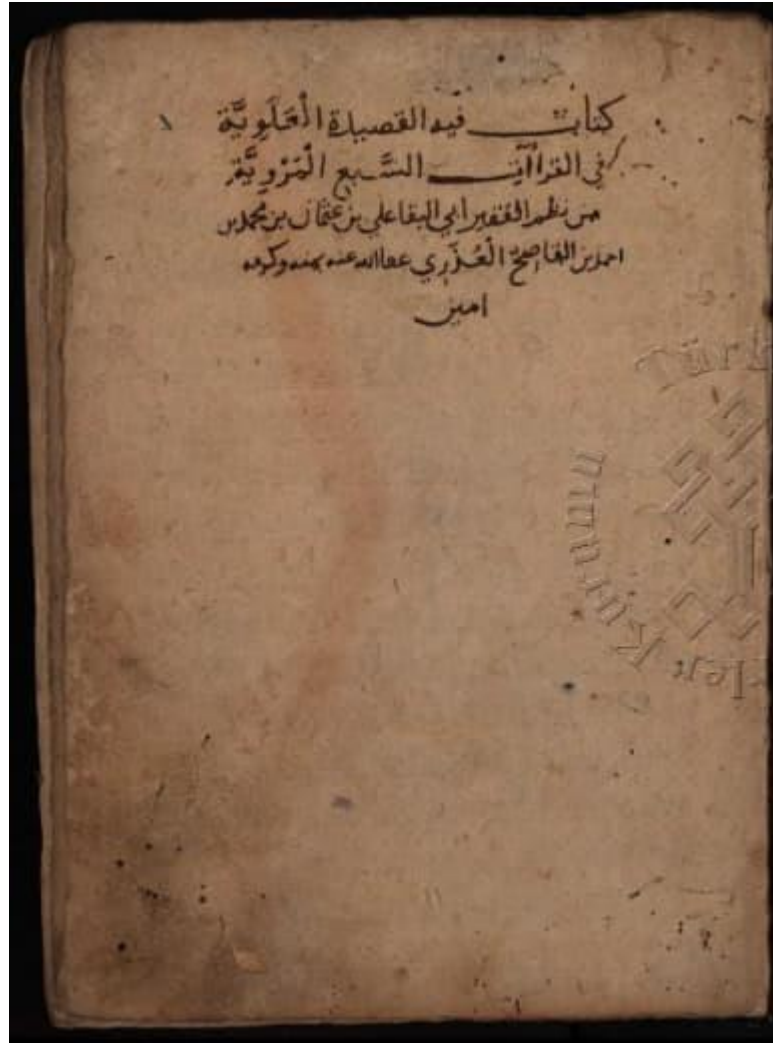 كتاب فيه القصيدة الْعَلَوِيَّة
في القراآت السَّبع الْمَرْوِيَّة
من نظم الفقير أبي البقا علي بن عثمان بن محمد بن
احمد بن القاصح الْعُذْرِي عفا الله عنه بمنه وكرمه
امين
Türk